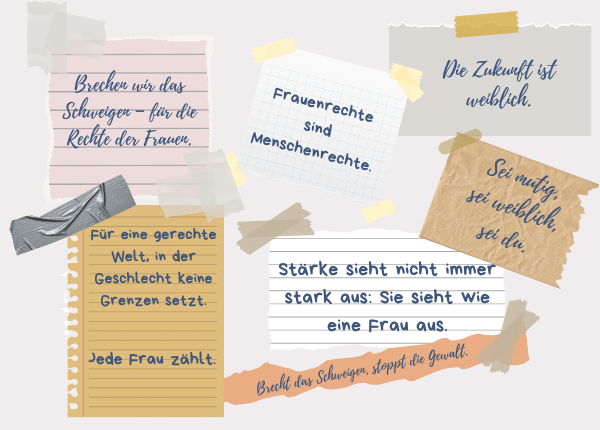 Brechen wir das
Schweigen – für die
Rechte der Frauen.
Frauenrechte
sind
Menschenrechte.
Die Zukunft ist
weiblich.
Sei mutig,
sei weiblich,
sei du.
Für eine gerechte
Welt, in der
Geschlecht keine
Grenzen setzt.
Jede Frau zählt.
Stärke sieht nicht immer
stark aus: Sie sieht wie
eine Frau aus.
Brecht das Schweigen, stoppt die Gewalt.